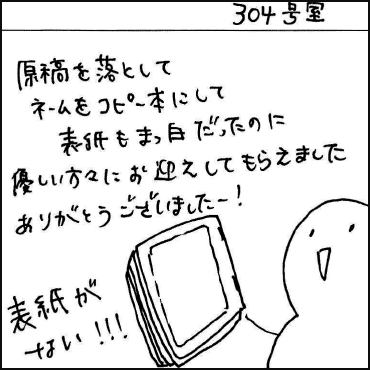 304号室
原稿を落として
ネームをコピー本にして
表紙もまっ白だったのに
優しい方々にお迎えしてもらえました
ありがとうございました〜!
表紙が
ない!!!